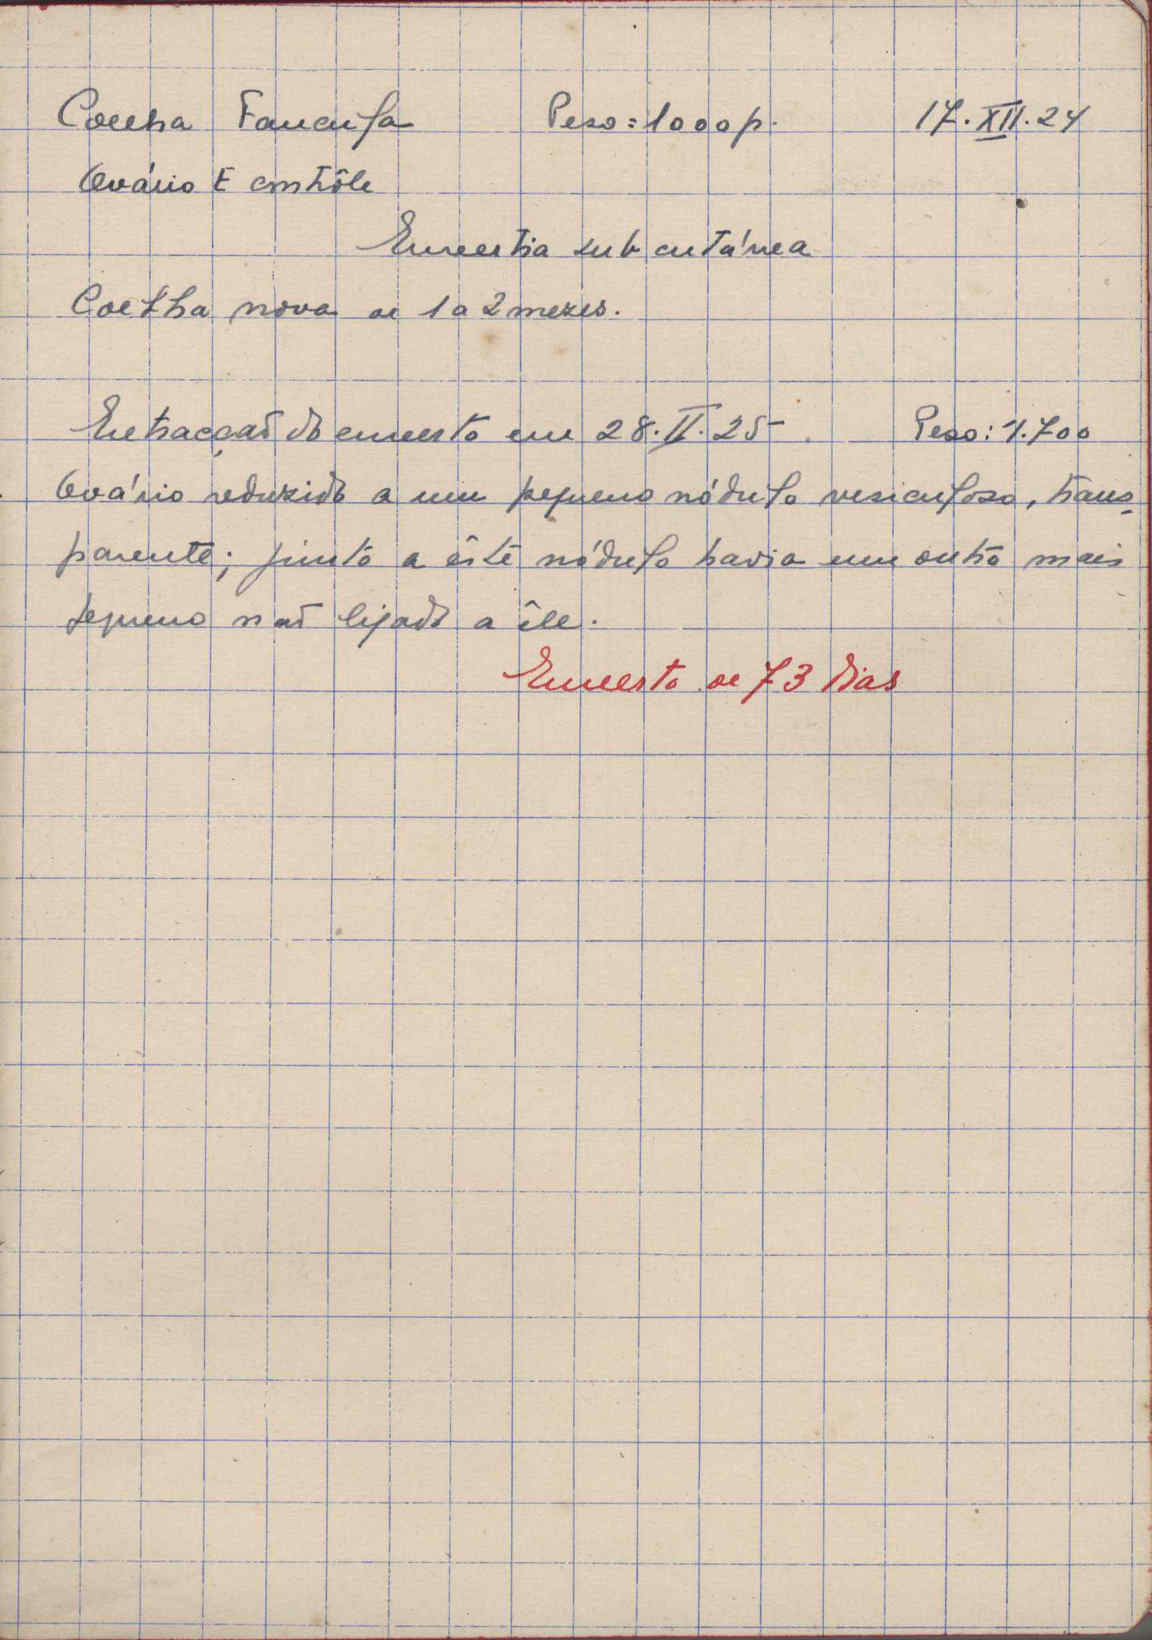 Coelha Fancufa Peso = 1000 g. 17.XII.24
Ovário E contrôle
Enxertia subcutánea
Coelha nova de 1 a 2 mezes.
Extracçaõ do enxerto em 28.II.25 Peso: 1.700
Ovário reduzido a um pequeno nódulo vesiculoso, trans-
parente; junto a êste nódulo havia um outro mais
pequeno naõ ligado a êle.
Enxerto de 73 dias